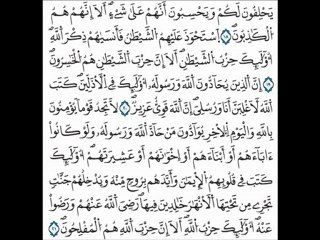 يَحْلِفُونَ لَكُمْ وَيَحْسَبُونَ أَنَّهُمْ عَلَىٰ شَىْءٍ ۚ أَلَآ إِنَّهُمْ هُمُ
ٱلْكَٰذِبُونَ ١٨ ٱسْتَحْوَذَ عَلَيْهِمُ ٱلشَّيْطَٰنُ فَأَنسَىٰهُمْ ذِكْرَ ٱللَّهِ ۚ
أُو۟لَٰٓئِكَ حِزْبُ ٱلشَّيْطَٰنِ ۚ أَلَآ إِنَّ حِزْبَ ٱلشَّيْطَٰنِ هُمُ ٱلْخَٰسِرُونَ
١٩ إِنَّ ٱلَّذِينَ يُحَآدُّونَ ٱللَّهَ وَرَسُولَهُۥٓ أُو۟لَٰٓئِكَ فِى ٱلْأَذَلِّينَ ٢٠ كَتَبَ
ٱللَّهُ لَأَغْلِبَنَّ أَنَا۠ وَرُسُلِىٓ ۚ إِنَّ ٱللَّهَ قَوِىٌّ عَزِيزٌ ٢١ لَّا تَجِدُ قَوْمًا يُؤْمِنُونَ
بِٱللَّهِ وَٱلْيَوْمِ ٱلْءَاخِرِ يُوَآدُّونَ مَنْ حَآدَّ ٱللَّهَ وَرَسُولَهُۥ وَلَوْ كَانُوٓا۟
ءَابَآءَهُمْ أَوْ أَبْنَآءَهُمْ أَوْ إِخْوَٰنَهُمْ أَوْ عَشِيرَتَهُمْ ۚ أُو۟لَٰٓئِكَ
كَتَبَ فِى قُلُوبِهِمُ ٱلْإِيمَٰنَ وَأَيَّدَهُم بِرُوحٍ مِّنْهُ ۖ وَيُدْخِلُهُمْ جَنَّٰتٍ
تَجْرِى مِن تَحْتِهَا ٱلْأَنْهَٰرُ خَٰلِدِينَ فِيهَا ۚ رَضِىَ ٱللَّهُ عَنْهُمْ وَرَضُوا۟
عَنْهُ ۚ أُو۟لَٰٓئِكَ حِزْبُ ٱللَّهِ ۚ أَلَآ إِنَّ حِزْبَ ٱللَّهِ هُمُ ٱلْمُفْلِحُونَ ٢٢